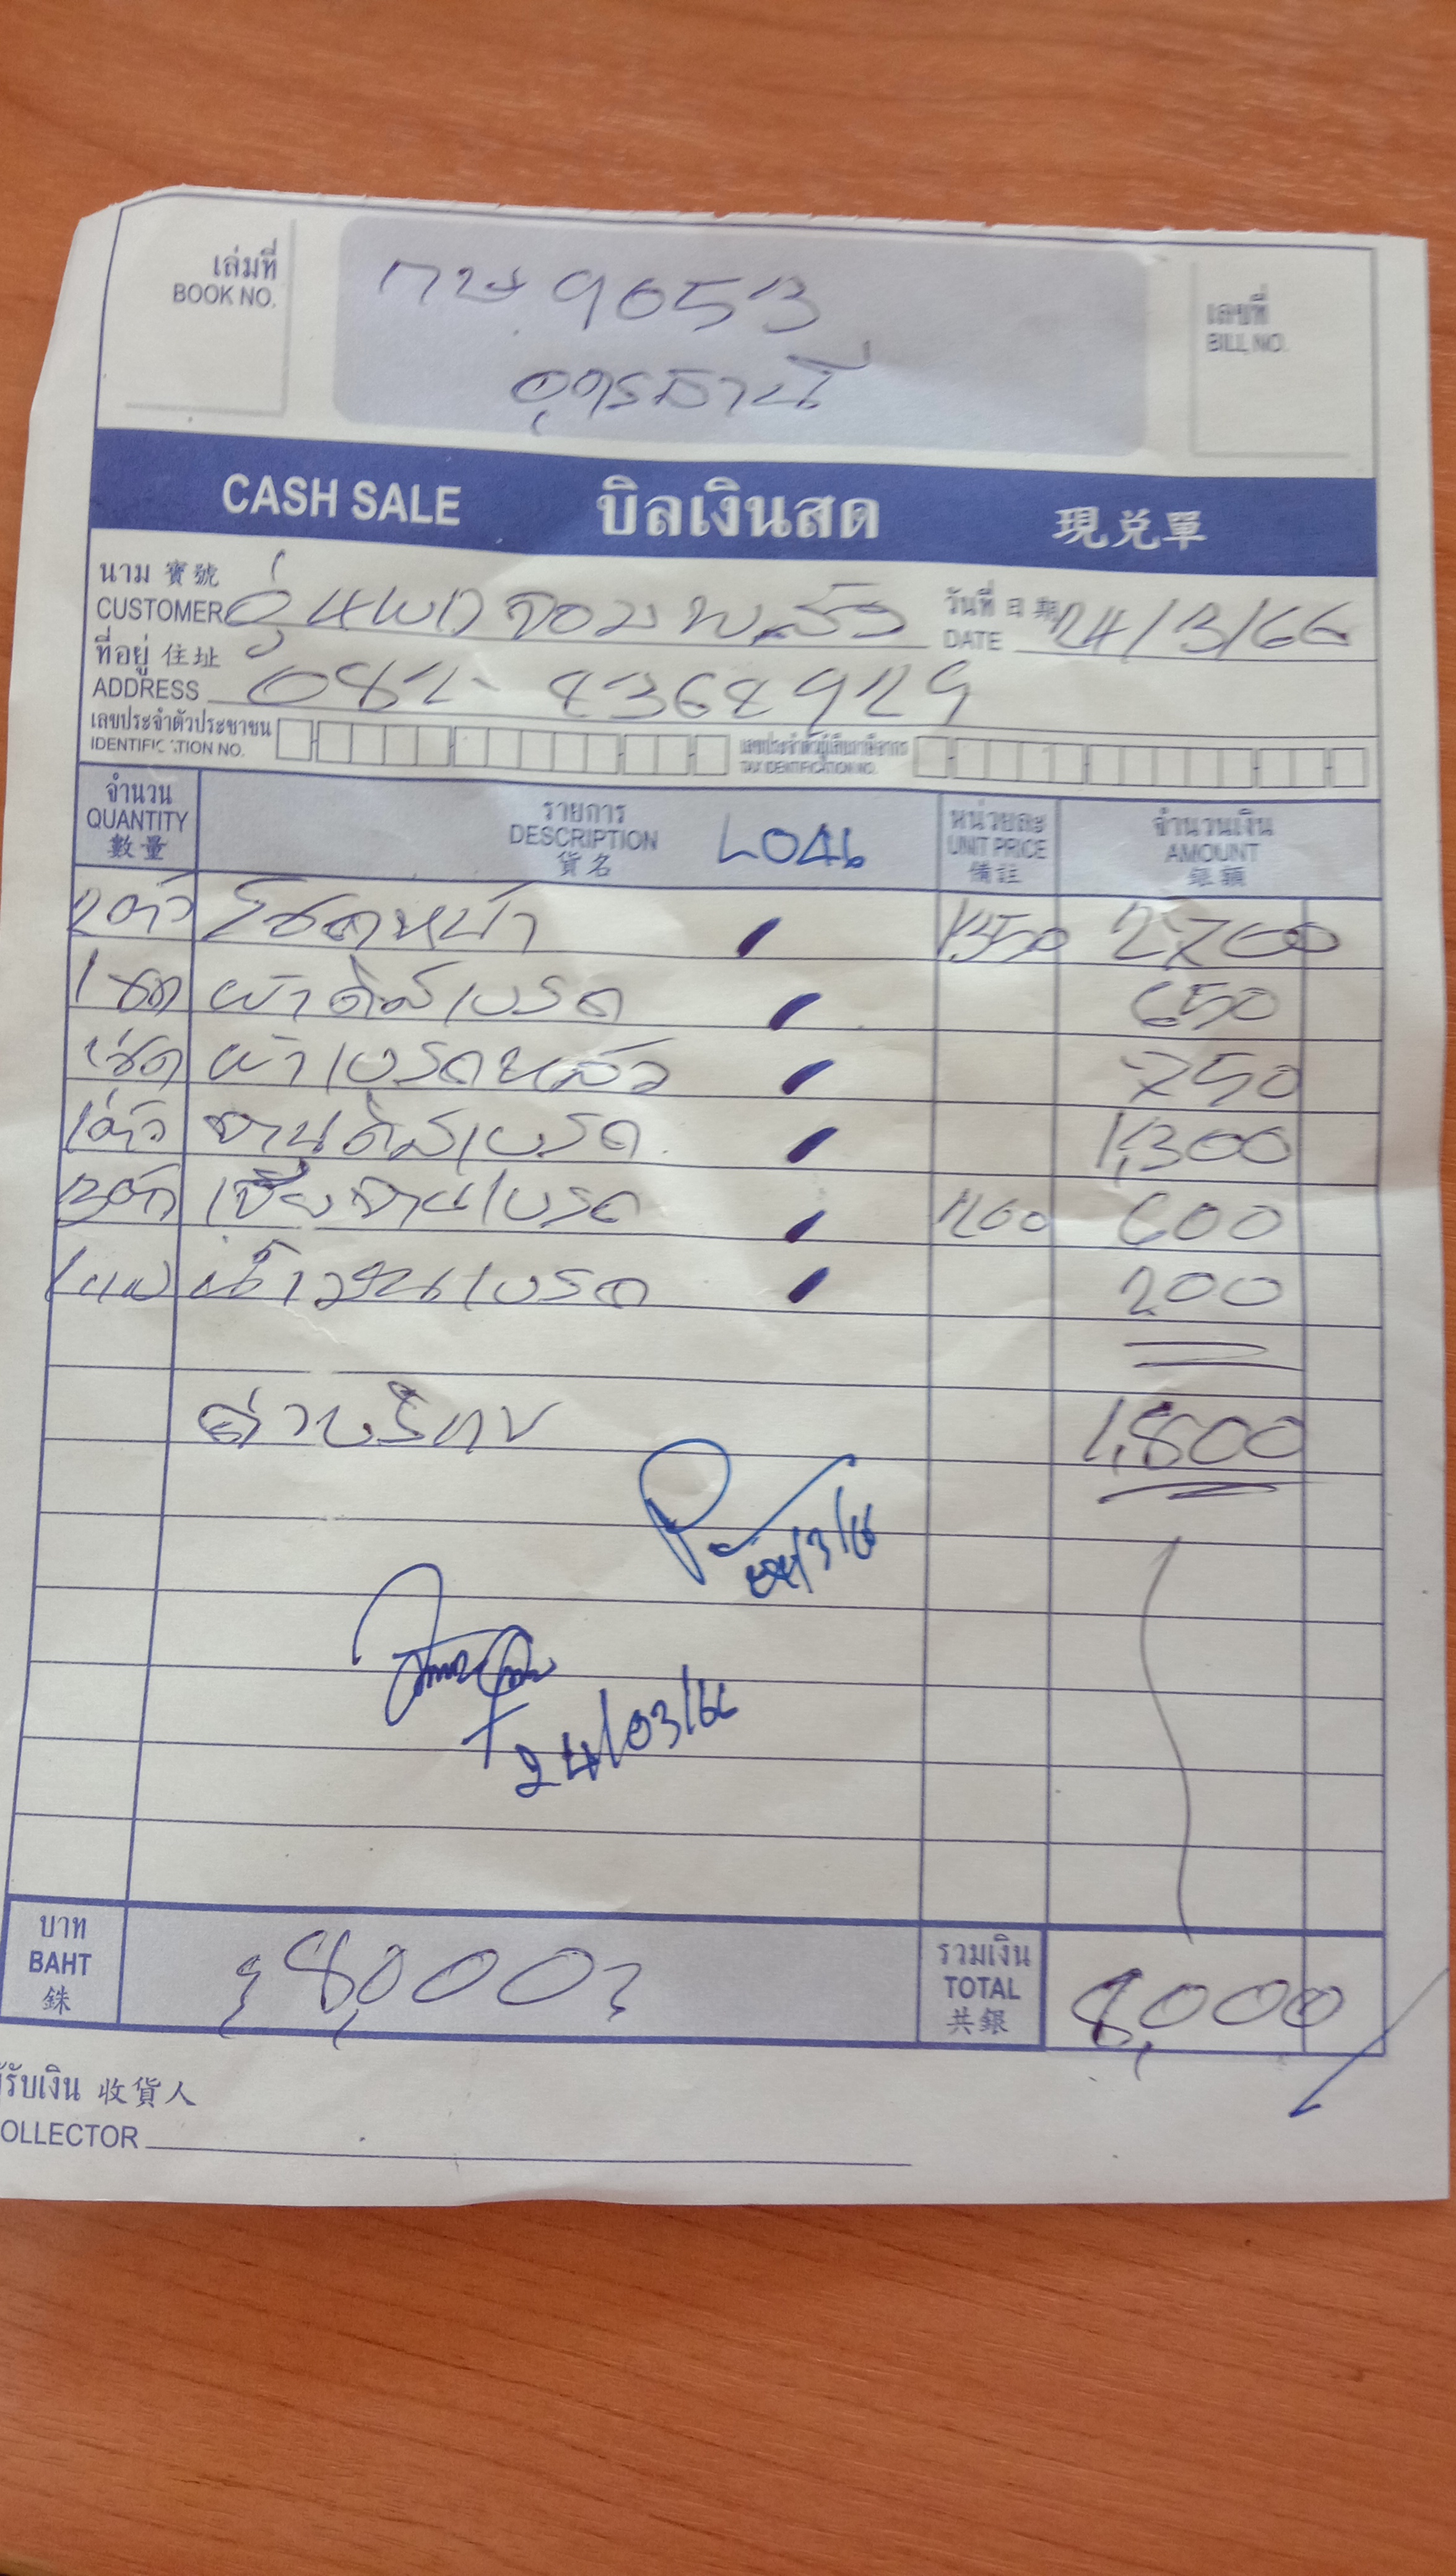 เล่มที่
BOOK NO.
กษ 9053
อุดรธานี
เลขที่
BILL NO.
CASH SALE บิลเงินสด 現兑單
นาม 寶號
CUSTOMER
วันที่ 日期 24/3/66
DATE
ที่อยู่ 住址
ADDRESS 082-8368929
เลขประจำตัวประชาชน
IDENTIFICATION NO.
เลขประจำตัวผู้เสียภาษีอากร
TAX IDENTIFICATION NO.
จำนวน QUANTITY 數量
รายการ DESCRIPTION 貨名 LO46
หน่วยละ UNIT PRICE 備註
จำนวนเงิน AMOUNT 銀額
2ตัว โช๊คหน้า 1350 2700
1ชุด ผ้าดิสเบรค 650
1ชุด ผ้าเบรคหลัง 750
1ตัว จานดิสเบรค 1,300
3ตัว เจียจานเบรค 600
น้ำมันเบรค 200
ค่าบริการ 1,800
24/3/66
24/03/66
บาท BAHT 銖 8,000
รวมเงิน TOTAL 共銀 8,000
รับเงิน 收貨人
OLLECTOR